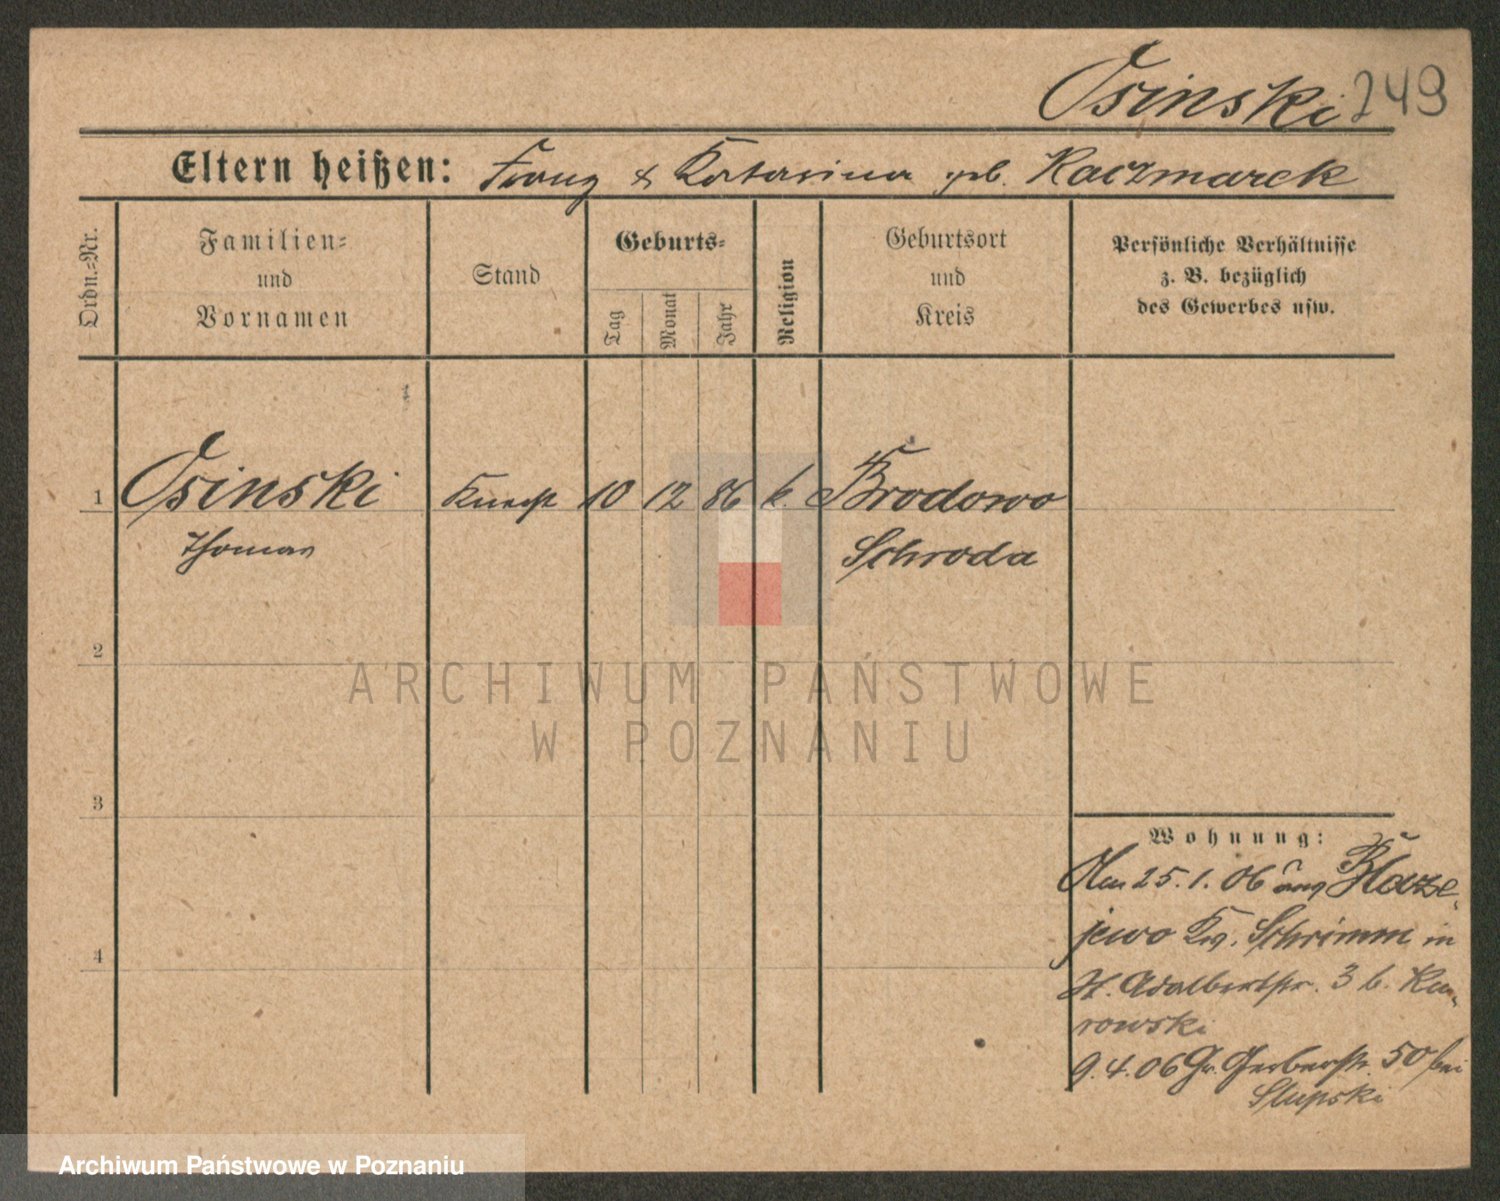 Osinski 249
Eltern heißen: Franz & Katarina geb. Kaczmarek
Ordn.=Nr.
Familien=
und
Vornamen
Stand
Geburts=
Tag
Monat
Jahr
Religion
Geburtsort
und
Kreis
Persönliche Verhältnisse
z. B. bezüglich
des Gewerbes usw.
1 Osinski Knecht 10 12 86 k. Brodowo
Thomas Schroda
2
3
4
Wohnung:
25.1.06 Blaze-
jewo Kr. Schrimm in
St. Adalbertstr. 3 b. Ku-
rowski
9.4.06 Gr. Gerberstr. 50 bei
Slupski
ARCHIWUM PAŃSTWOWE
W POZNANIU
Archiwum Państwowe w Poznaniu